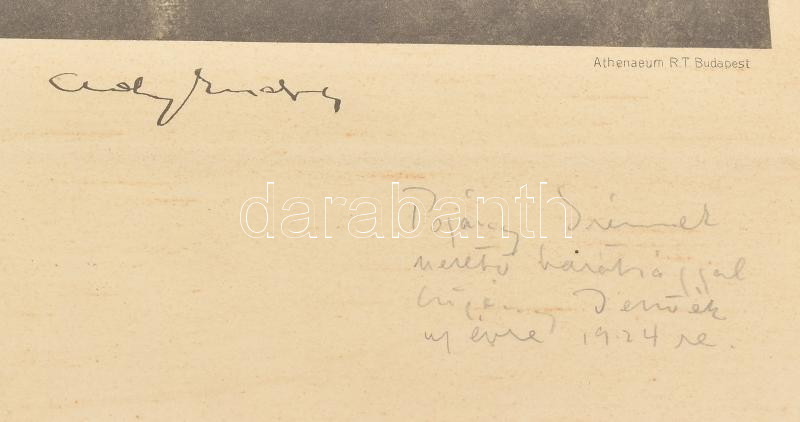 Athenaeum R.T. Budapest
Ady Endre
darabanth
szerető barátsággal
Jenőék
uj évre 1924 re.